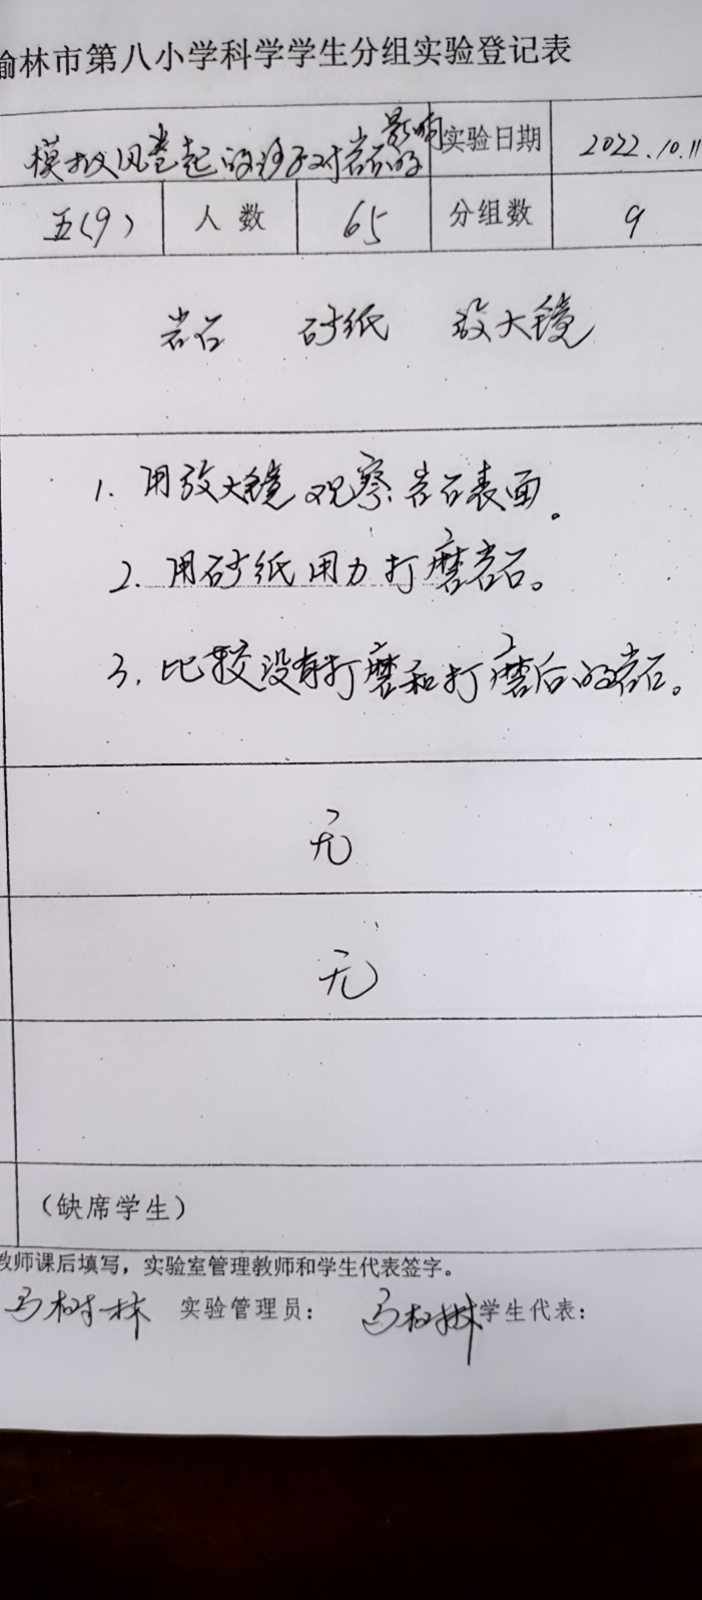 榆林市第八小学科学学生分组实验登记表
模拟风卷起的沙子对岩石的影响 实验日期 2022.10.11
五(9) 人数 65 分组数 9
岩石 砂纸 放大镜
1. 用放大镜观察岩石表面。
2. 用砂纸用力打磨岩石。
3. 比较没有打磨和打磨后的岩石。
无
无
(缺席学生)
教师课后填写，实验室管理教师和学生代表签字。
马树林 实验管理员： 马树林 学生代表：